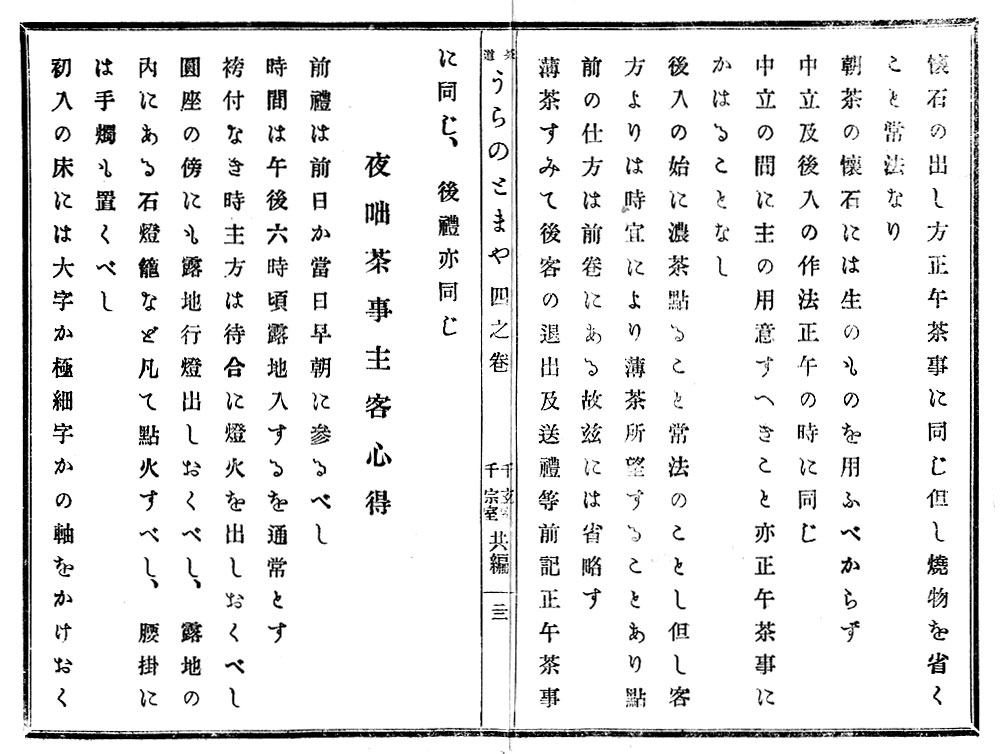 懷石の出し方正午茶事に同じ但し燒物を省く
こと常法なり
朝茶の懷石には生のものを用ふべからず
中立及後入の作法正午の時に同じ
中立の間に主の用意すへきこと亦正午茶事に
かはることなし
後入の始に濃茶點ることと常法のことし但し客
方よりは時宜により薄茶所望することあり點
前の仕方は前卷にある故玆には省略す
薄茶すみて後客の退出及送禮等前記正午茶事
茶道うらのとまや 四之卷
千宗室 共編
三三
に同じ、後禮亦同じ
夜咄茶事主客心得
前禮は前日か當日早朝に參るべし
時間は午後六時頃露地入するを通常とす
袴付なき時主方は待合に燈火を出しおくべし
圓座の傍にも露地行燈出しおくべし、露地の
內にある石燈籠など凡て點火すべし、腰掛に
は手燭も置くべし
初入の床には大字か極細字かの軸をかけおく